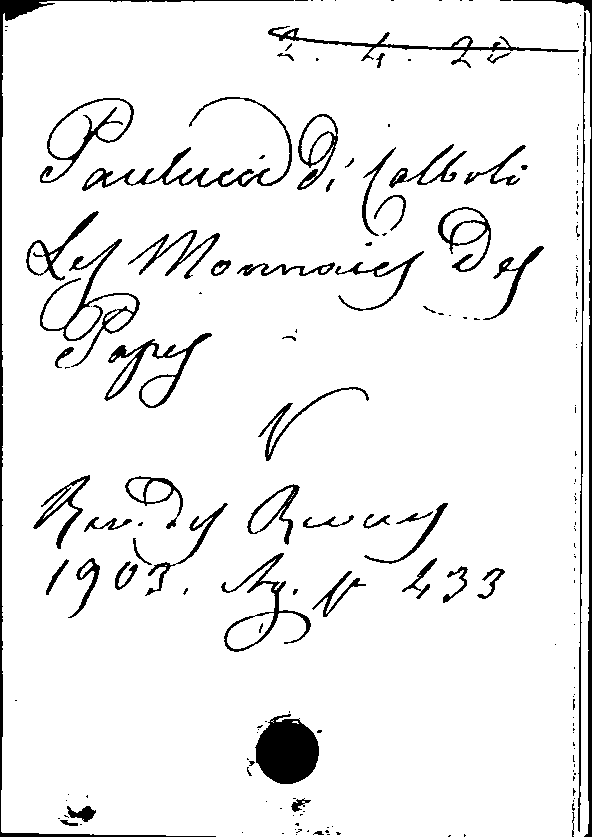 2. 4. 20
Paulucci Di Calboli
Les Monnaies Des
Papes
V
Rev. des Revues
1903. Ag. p 433